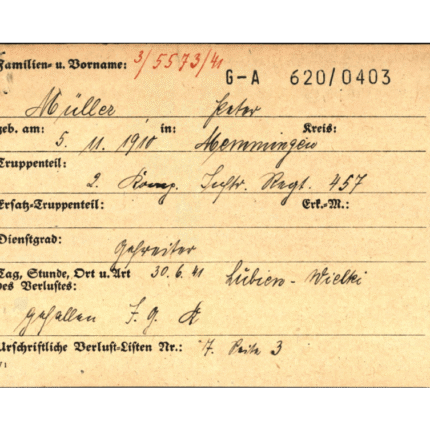 Familien- u. Vorname: 3/5573/41
G-A 620/0403
Müller, Peter
geb. am: 5. 11. 1910 in: Memmingen Kreis:
Truppenteil:
2. Komp. Inftr. Regt. 457
Ersatz-Truppenteil: Erk.-M.:
Dienstgrad: Gefreiter
Tag, Stunde, Ort u. Art 30. 6. 41 Lubien-Wielki
des Verlustes:
gefallen I. G.
Urschriftliche Verlust-Listen Nr.: 7. Seite 3